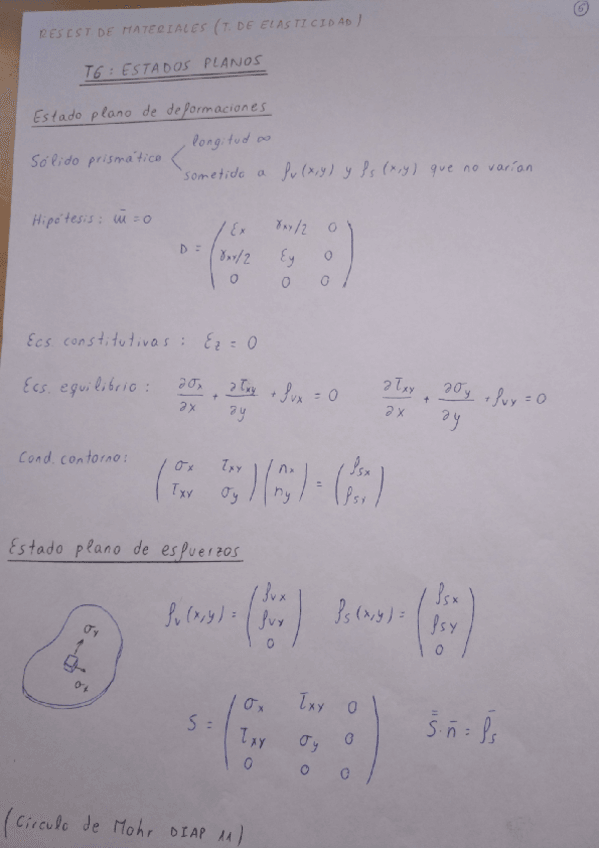 5
RESIST. DE MATERIALES (T. DE ELASTICIDAD)
T6: ESTADOS PLANOS
Estado plano de deformaciones
Sólido prismático < longitud ∞
sometido a f_v(x,y) y f_s(x,y) que no varían
Hipótesis: m̄=0
D = ( εx γxy/2 0
γxy/2 εy 0
0 0 0 )
Ecs. constitutivas: εz = 0
Ecs. equilibrio: ∂σx/∂x + ∂τxy/∂y + f_vx = 0 ∂τxy/∂x + ∂σy/∂y + f_vy = 0
Cond. contorno: ( σx τxy ) ( nx ) = ( f_sx )
( τxy σy ) ( ny ) ( f_sy )
Estado plano de esfuerzos
f_v(x,y) = ( f_vx f_vy 0 ) f_s(x,y) = ( f_sx f_sy 0 )
σy
σx
S = ( σx τxy 0
τxy σy 0
0 0 0 ) S̿·n̄ = f̄s
(Círculo de Mohr DIAP 11)